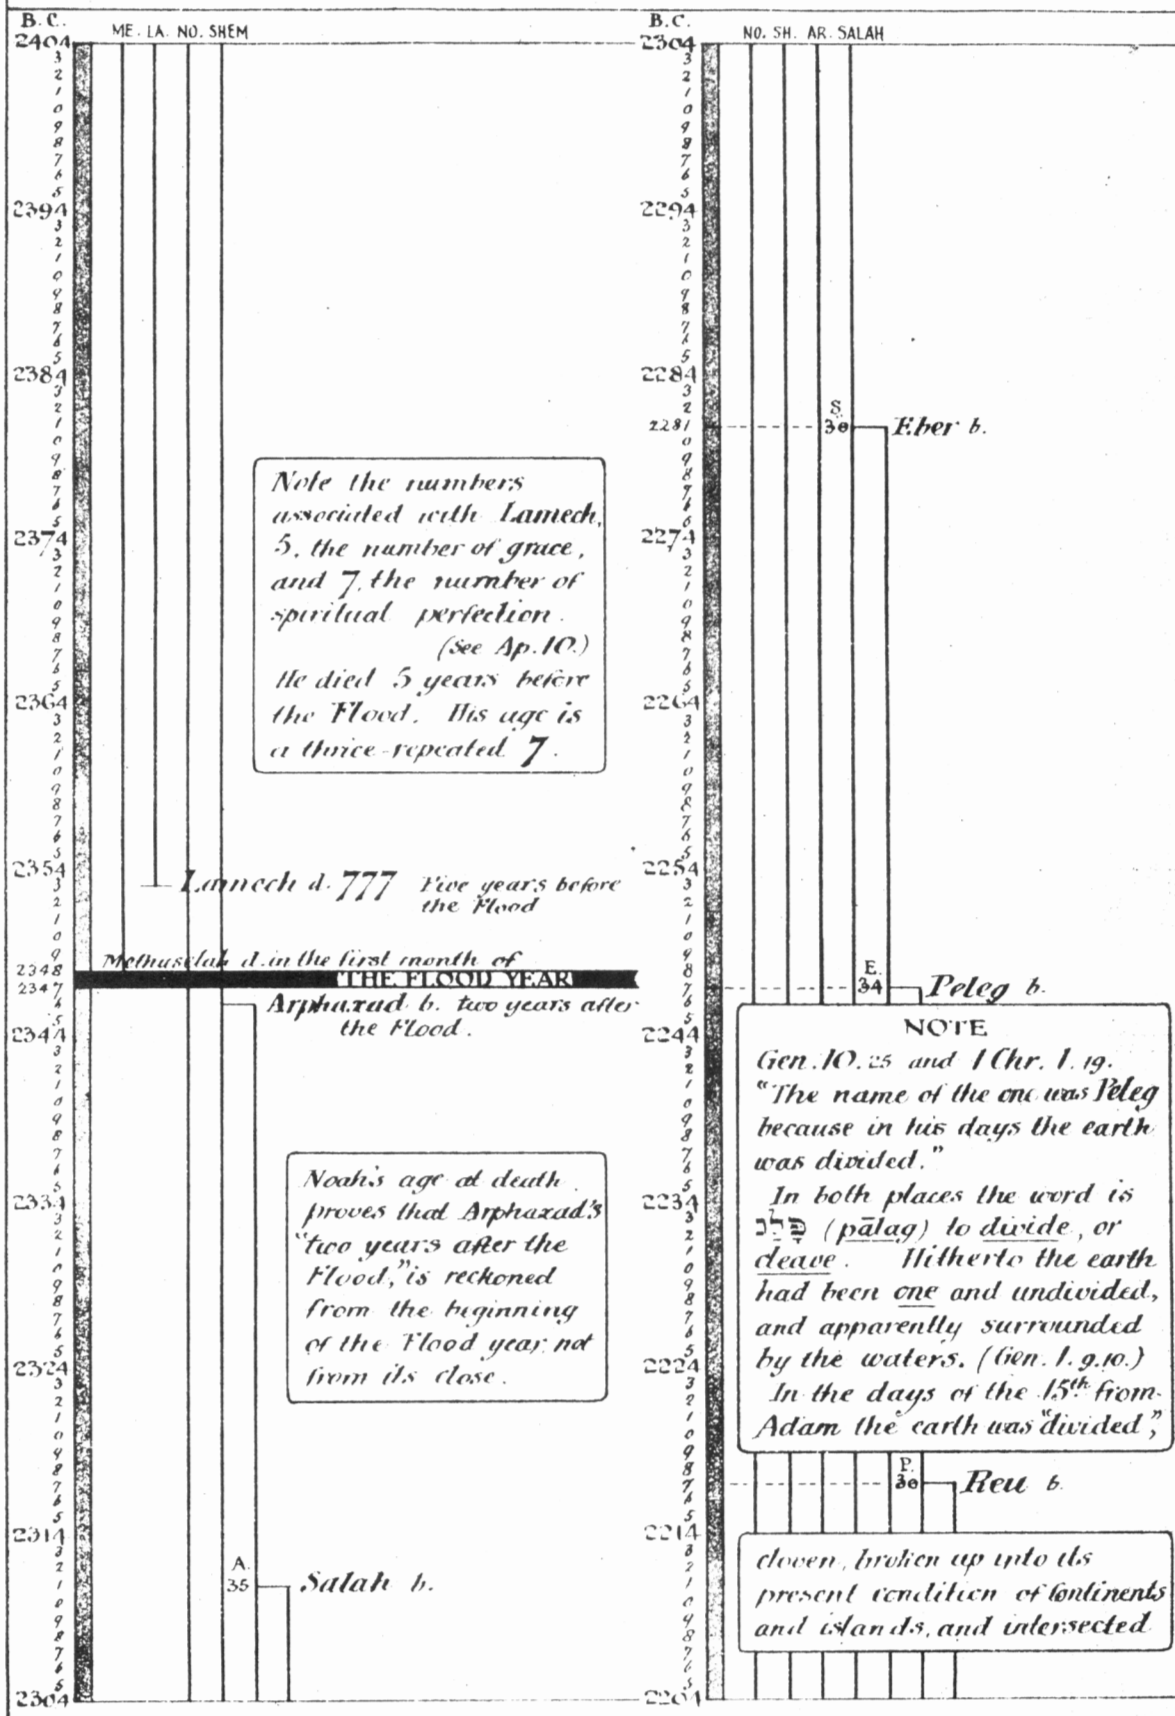 B.C.
ME. LA. NO. SHEM
2404
3
2
1
0
9
8
7
6
5
2394
3
2
1
0
9
8
7
6
5
2384
3
2
1
0
9
8
7
6
5
2374
3
2
1
0
9
8
7
6
5
2364
3
2
1
0
9
8
7
6
5
2354
3
2
1
0
9
2348
2347
6
5
2344
3
2
1
0
9
8
7
6
5
2334
3
2
1
0
9
8
7
6
5
2324
3
2
1
0
9
8
7
6
5
2314
3
2
1
0
9
8
7
6
5
2304
Note the numbers
associated with Lamech,
5, the number of grace,
and 7, the number of
spiritual perfection.
(see Ap. 10.)
He died 5 years before
the Flood. His age is
a thrice-repeated 7.
Lamech d. 777 Five years before
the Flood
Methuselah d. in the first month of
THE FLOOD YEAR
Arphaxad b. two years after
the Flood.
Noah's age at death
proves that Arphaxad's
"two years after the
Flood," is reckoned
from the beginning
of the Flood year, not
from its close.
A.
35 Salah b.
B.C.
NO. SH. AR. SALAH
2304
3
2
1
0
9
8
7
6
5
2294
3
2
1
0
9
8
7
6
5
2284
3
2
2281
0
9
8
7
6
5
2274
3
2
1
0
9
8
7
6
5
2264
3
2
1
0
9
8
7
6
5
2254
3
2
1
0
9
8
7
6
5
2244
3
2
1
0
9
8
7
6
5
2234
3
2
1
0
9
8
7
6
5
2224
3
2
1
0
9
8
7
6
5
2214
3
2
1
0
9
8
7
6
5
2204
S.
30 Eber b.
E.
34 Peleg b.
NOTE
Gen. 10. 25 and 1 Chr. 1. 19.
"The name of the one was Peleg
because in his days the earth
was divided."
In both places the word is
פָּלַג (pālag) to divide, or
cleave. Hitherto the earth
had been one and undivided,
and apparently surrounded
by the waters. (Gen. 1. 9.10.)
In the days of the 15th from
Adam the earth was "divided,"
P.
30 Reu b.
cloven, broken up into its
present condition of Continents
and islands, and intersected